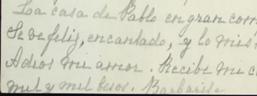 La casa de Pablo en gran com
Se ve feliz, encantado, y lo mis
Adios mi amor. Recibe mi c
mil y mil besos.